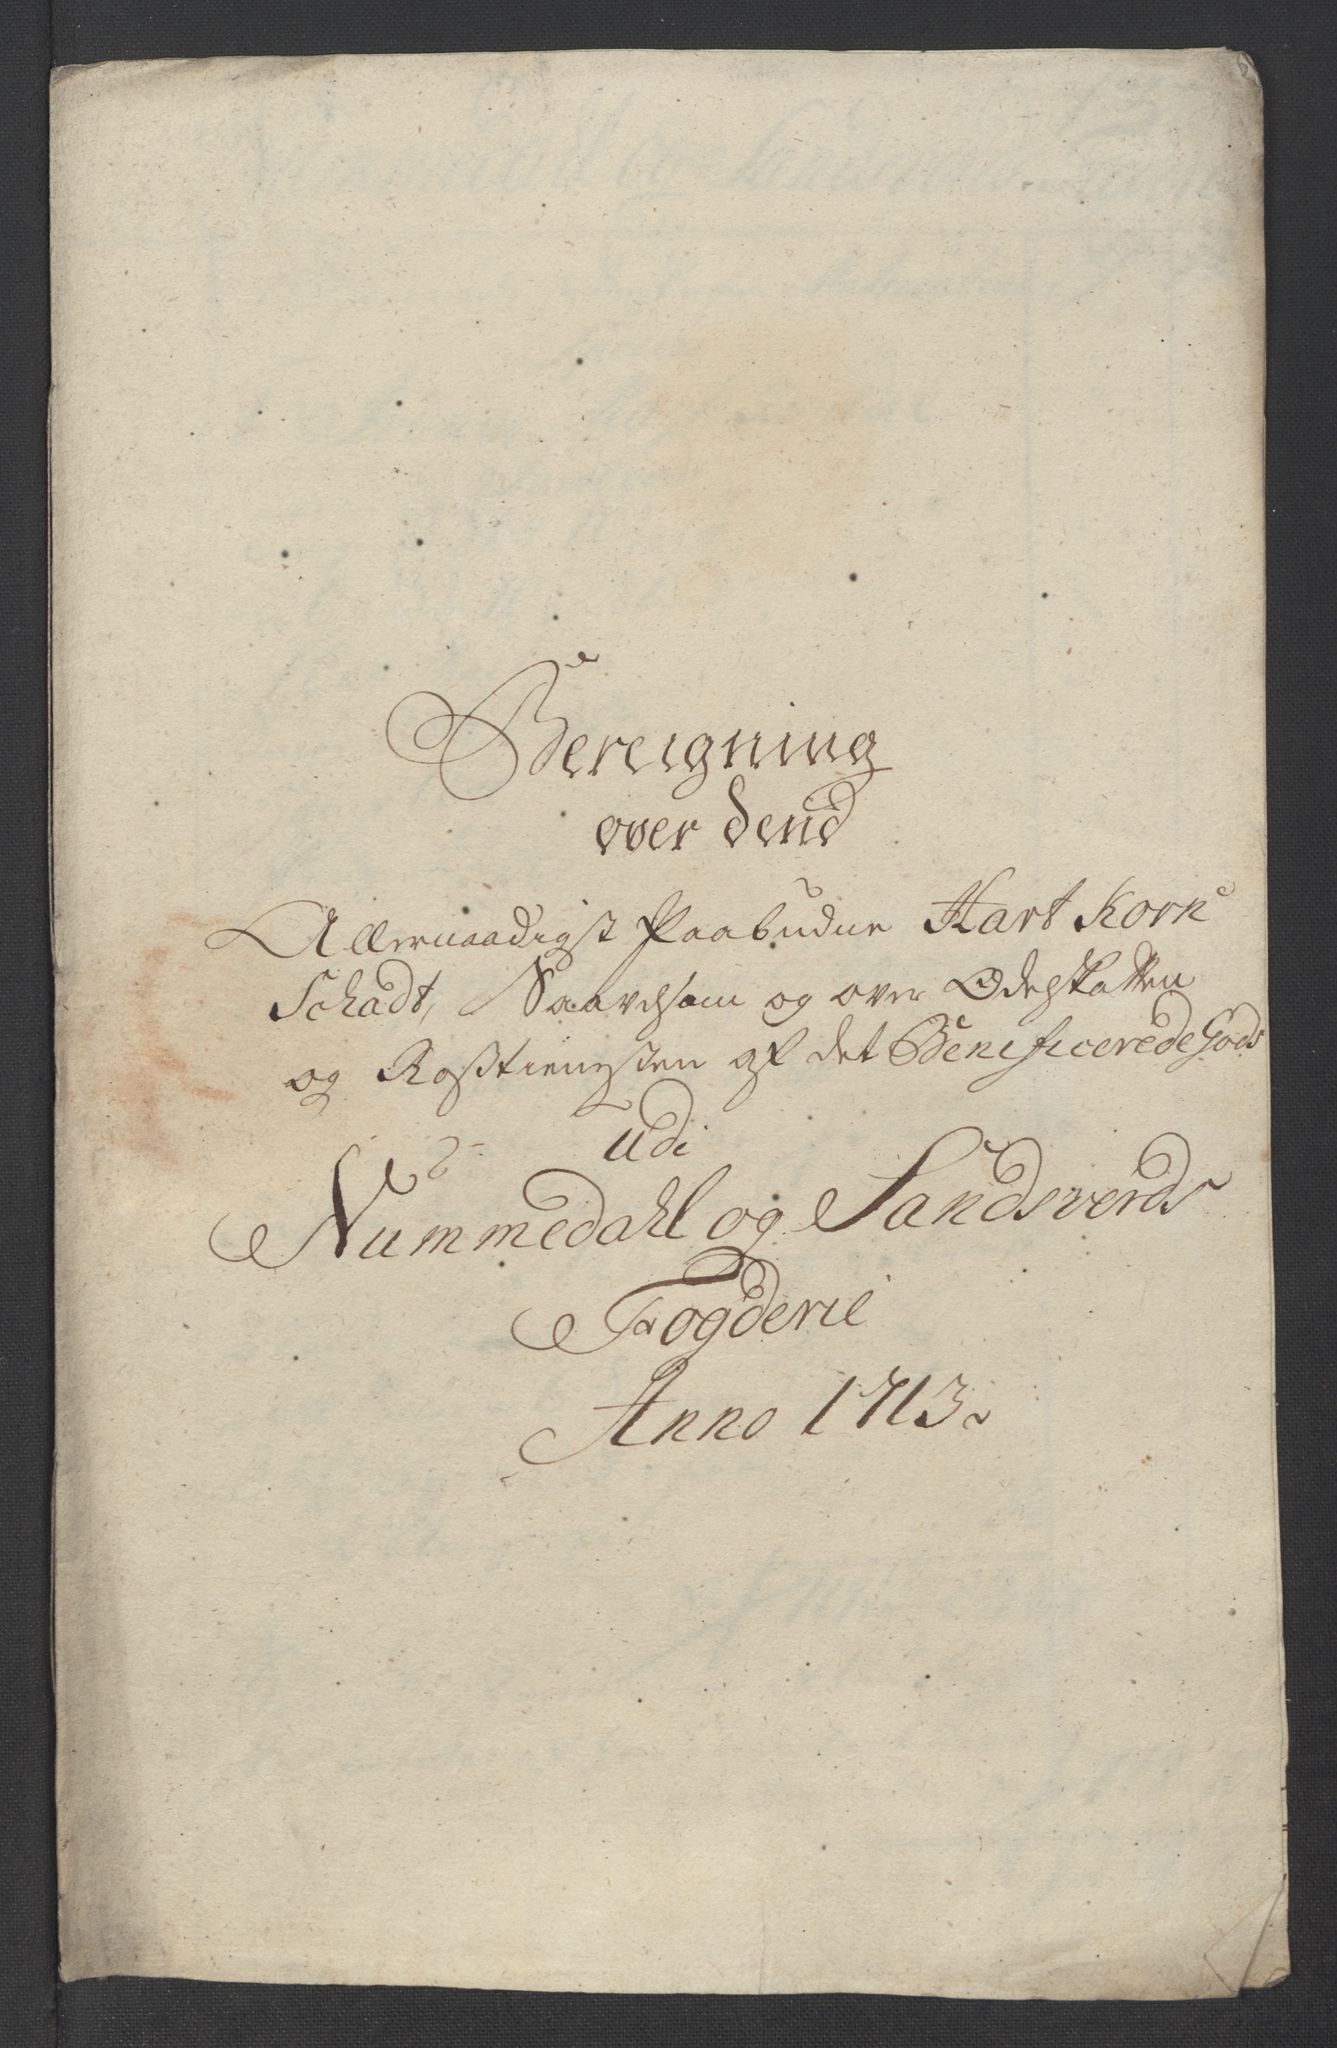 Bereigning
over dend
Allernaadigst Paabudne Hart Korn
Schadt, Saavelsom og over Ødeskatten
og Rosstienesten af det Benificerede Gods
udi
Nummedahl og Sandsverds
Fogderie
Anno 1713